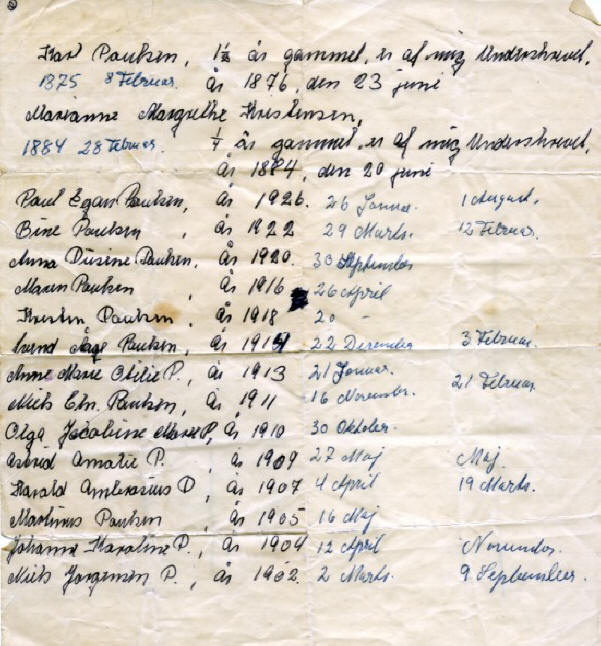 Karl Paulsen, 1½ år gammel, er af mig Underskrevet,
1875 8 Februar. år 1876, den 23 juni
Marianne Margrethe Kristensen,
1884 28 Februar. ¼ år gammel, er af mig Underskrevet,
år 1884, den 20 juni
Paul Egan Paulsen, år 1926. 26 Januar. 1 August.
Bine Paulsen, år 1922 29 Marts. 12 Februar.
Anna Paulsen, år 1920. 30 September
Maren Paulsen år 1916 26 April
Kresten Paulsen, år 1918 20 -
Åge Paulsen, år 1914 22 December 3 Februar.
Anne Marie Otilie P., år 1913 21 Januar. 21 Februar.
Niels Chr. Paulsen, år 1911 16 November.
Olga Jacobine Marie P, år 1910 30 Oktober.
Astrid Amalie P. år 1909 27 Maj Maj.
Harald Ambrosius P, år 1907 4 April 19 Marts.
Martinus Paulsen år 1905 16 Maj
Johanne Karoline P., år 1904 12 April
Niels Jørgensen P., år 1902. 2 Marts. 9 September.